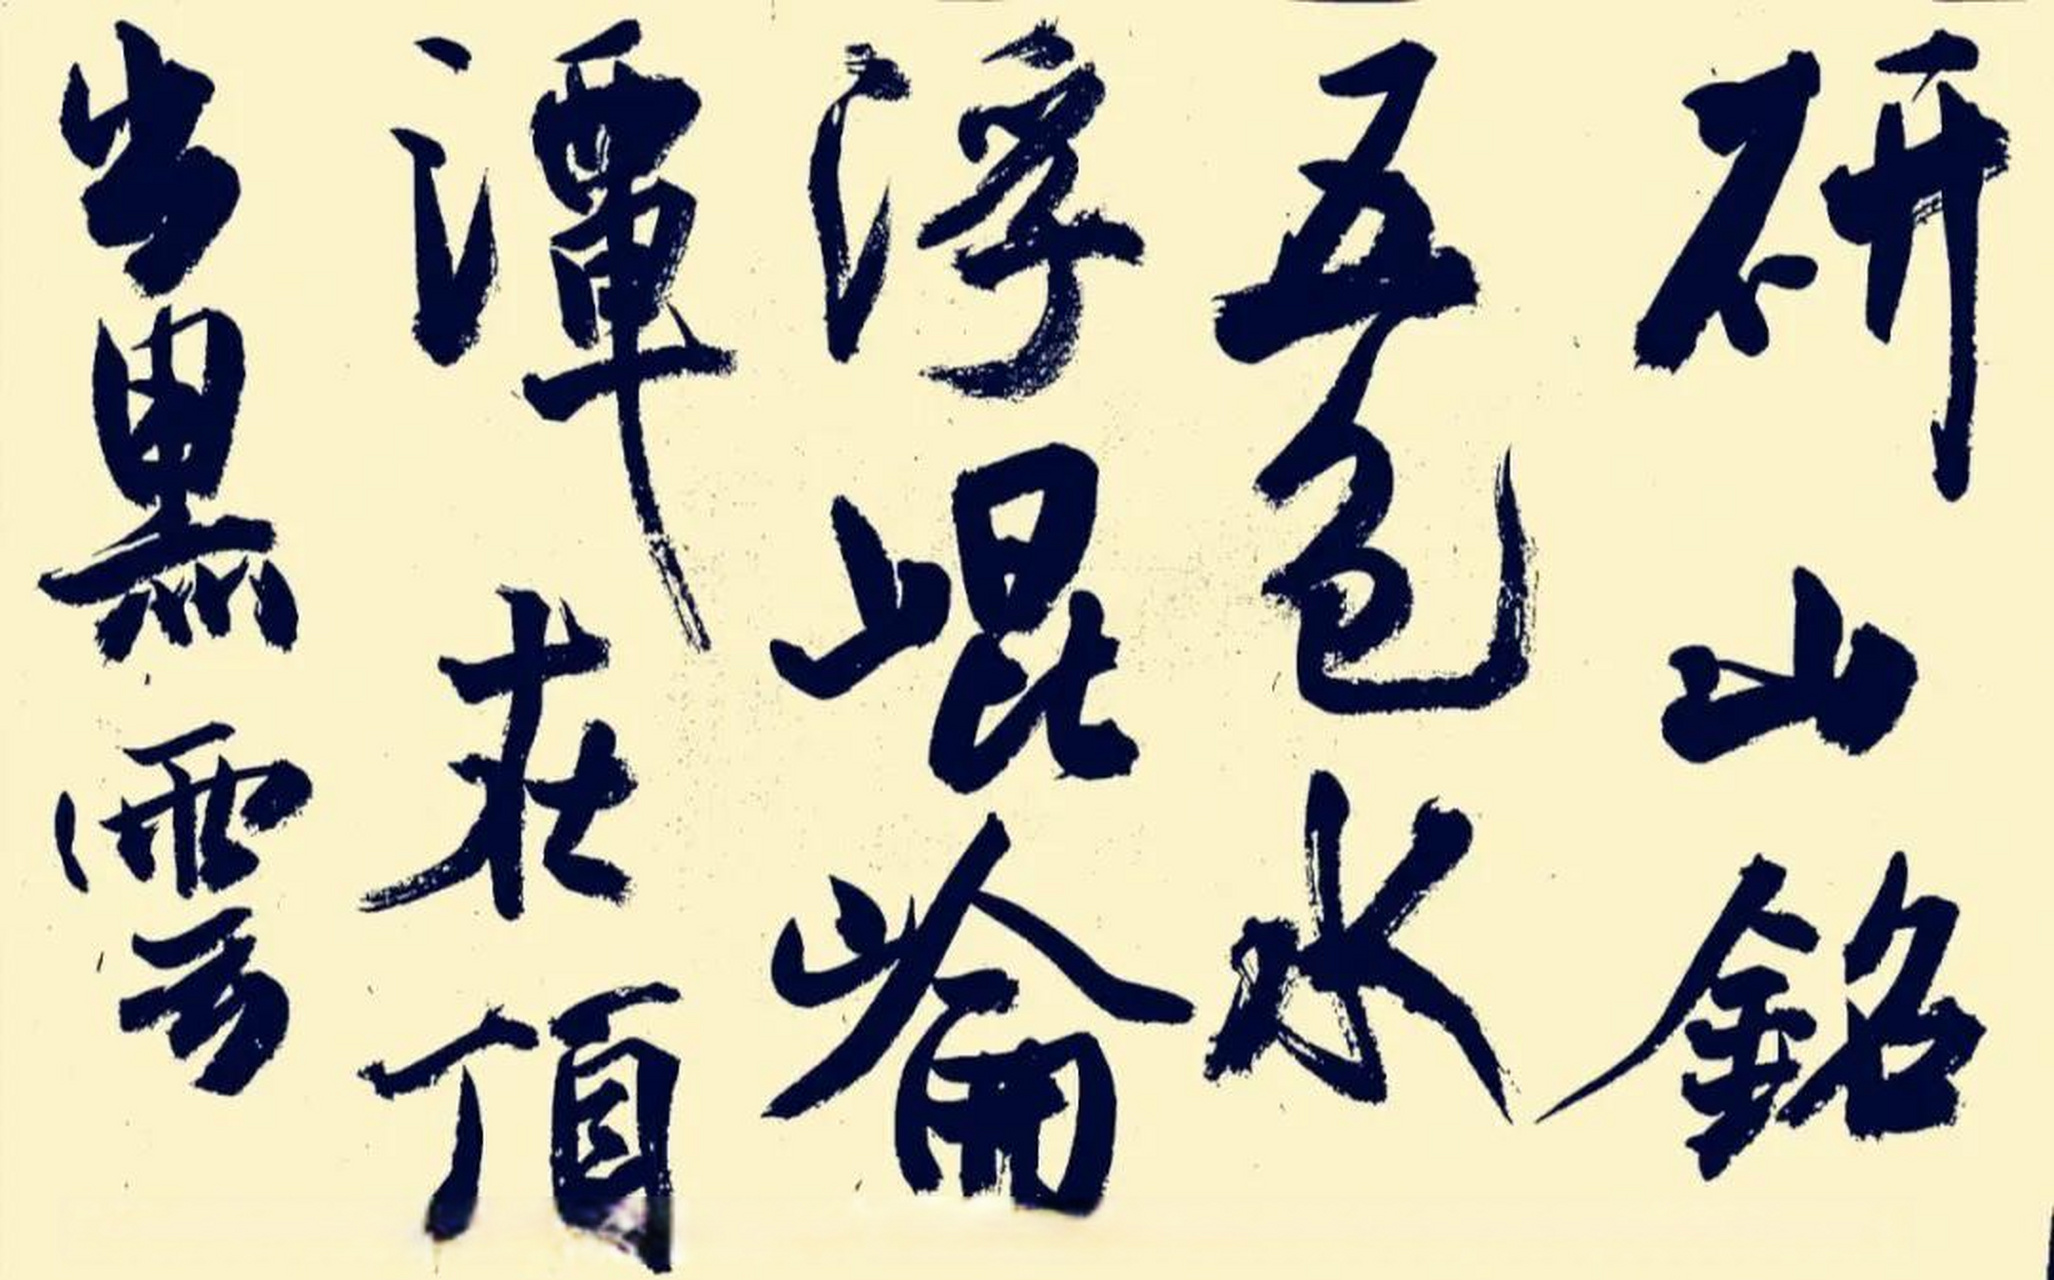 研山銘
五色水
浮崐崘
潭在頂
出黑雲